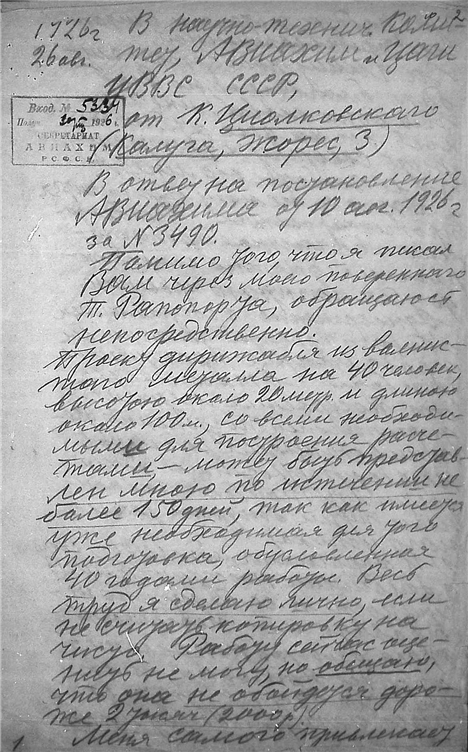 1926 г
26 авг.
В научно-технич. Коми-
тет, АВИАХИМ и ЦАГИ
УВВС СССР,
от К. Циолковского
(Калуга, Жорес, 3)
Вход. № 5337
1926 г.
СЕКРЕТАРИАТ
АВИАХИМ
Р.С.Ф.С.Р.
В ответ на постановление
АВИАХИМА от 10 авг. 1926 г
за N 3490.
Помимо того, что я писал
Вам через моего поверенного
т. Рапопорта, обращаюсь
непосредственно.
Проект дирижабля из волнис-
того металла на 40 человек,
высотою около 20 метр. и длиною
около 100 м., со всеми необходи-
мыми для построения расче-
тами – может быть представ-
лен мною по истечении не
более 150 дней, так как имеется
уже необходимая для того
подготовка, обусловленная
40 годами работы. Весь
труд я сделаю лично, если
не считать копировку на
чисто. Работу сейчас оце-
нить не могу, но обещаю,
что она не обойдется доро-
же 2 тысяч (2000 р.)
Меня самого привлекает
1